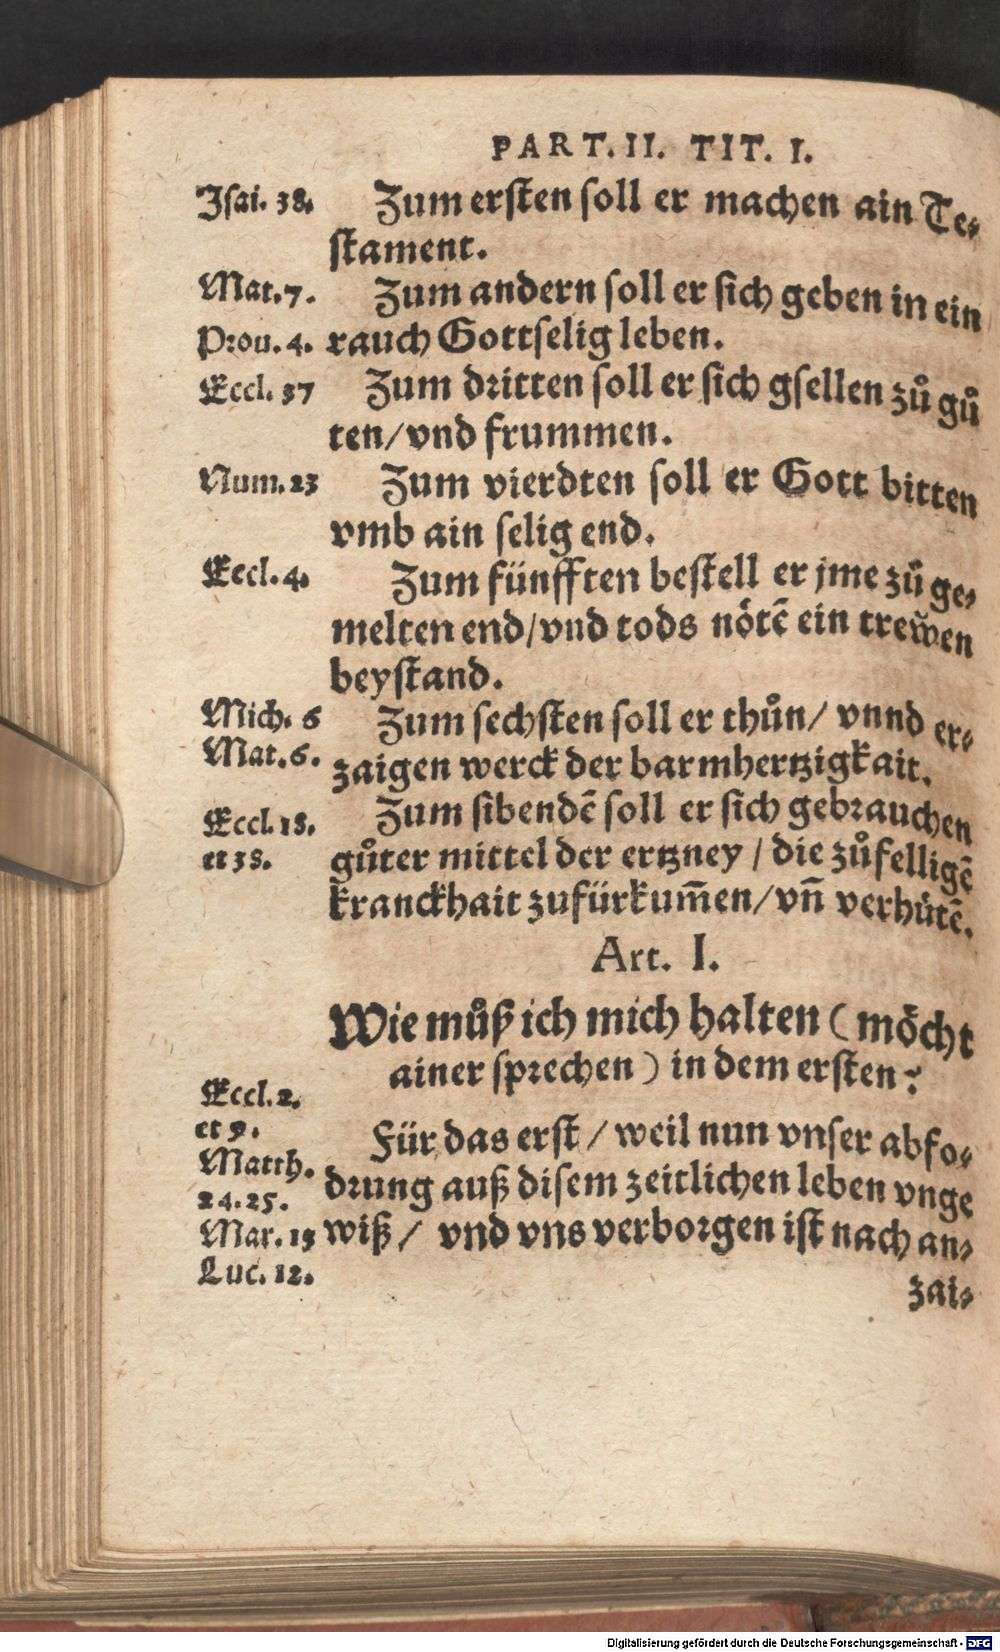 PART. II. TIT. I.
Isai. 38.
Zum ersten soll er machen ain Te⸗
stament.
Mat. 7.
Zum andern soll er sich geben in ein
Prou. 4.
rauch Gottselig leben.
Eccl. 37
Zum dritten soll er sich gsellen zů gů
ten/vnd frummen.
Num. 23
Zum vierdten soll er Gott bitten
vmb ain selig end.
Eccl. 4.
Zum fünfften bestell er jme zů ge⸗
melten end/vnd tods nötē ein trewen
beystand.
Mich. 6
Zum sechsten soll er thůn/ vnnd er⸗
Mat. 6.
zaigen werck der barmhertzigkait.
Zum sibendē soll er sich gebrauchen
Eccl. 18.
et 38.
gůter mittel der ertzney / die zůfelligē
kranckhait zufürkum̄en/vn̄ verhütē.
Art. I.
Wie můß ich mich halten (möcht
ainer sprechen) in dem ersten?
Eccl. 2.
et 9.
Für das erst / weil nun vnser abfo⸗
Matth.
24. 25.
drung auß disem zeitlichen leben vnge
Mar. 13
wiß/ vnd vns verborgen ist nach an⸗
Luc. 12.
zai⸗
Digitalisierung gefördert durch die Deutsche Forschungsgemeinschaft - DFG